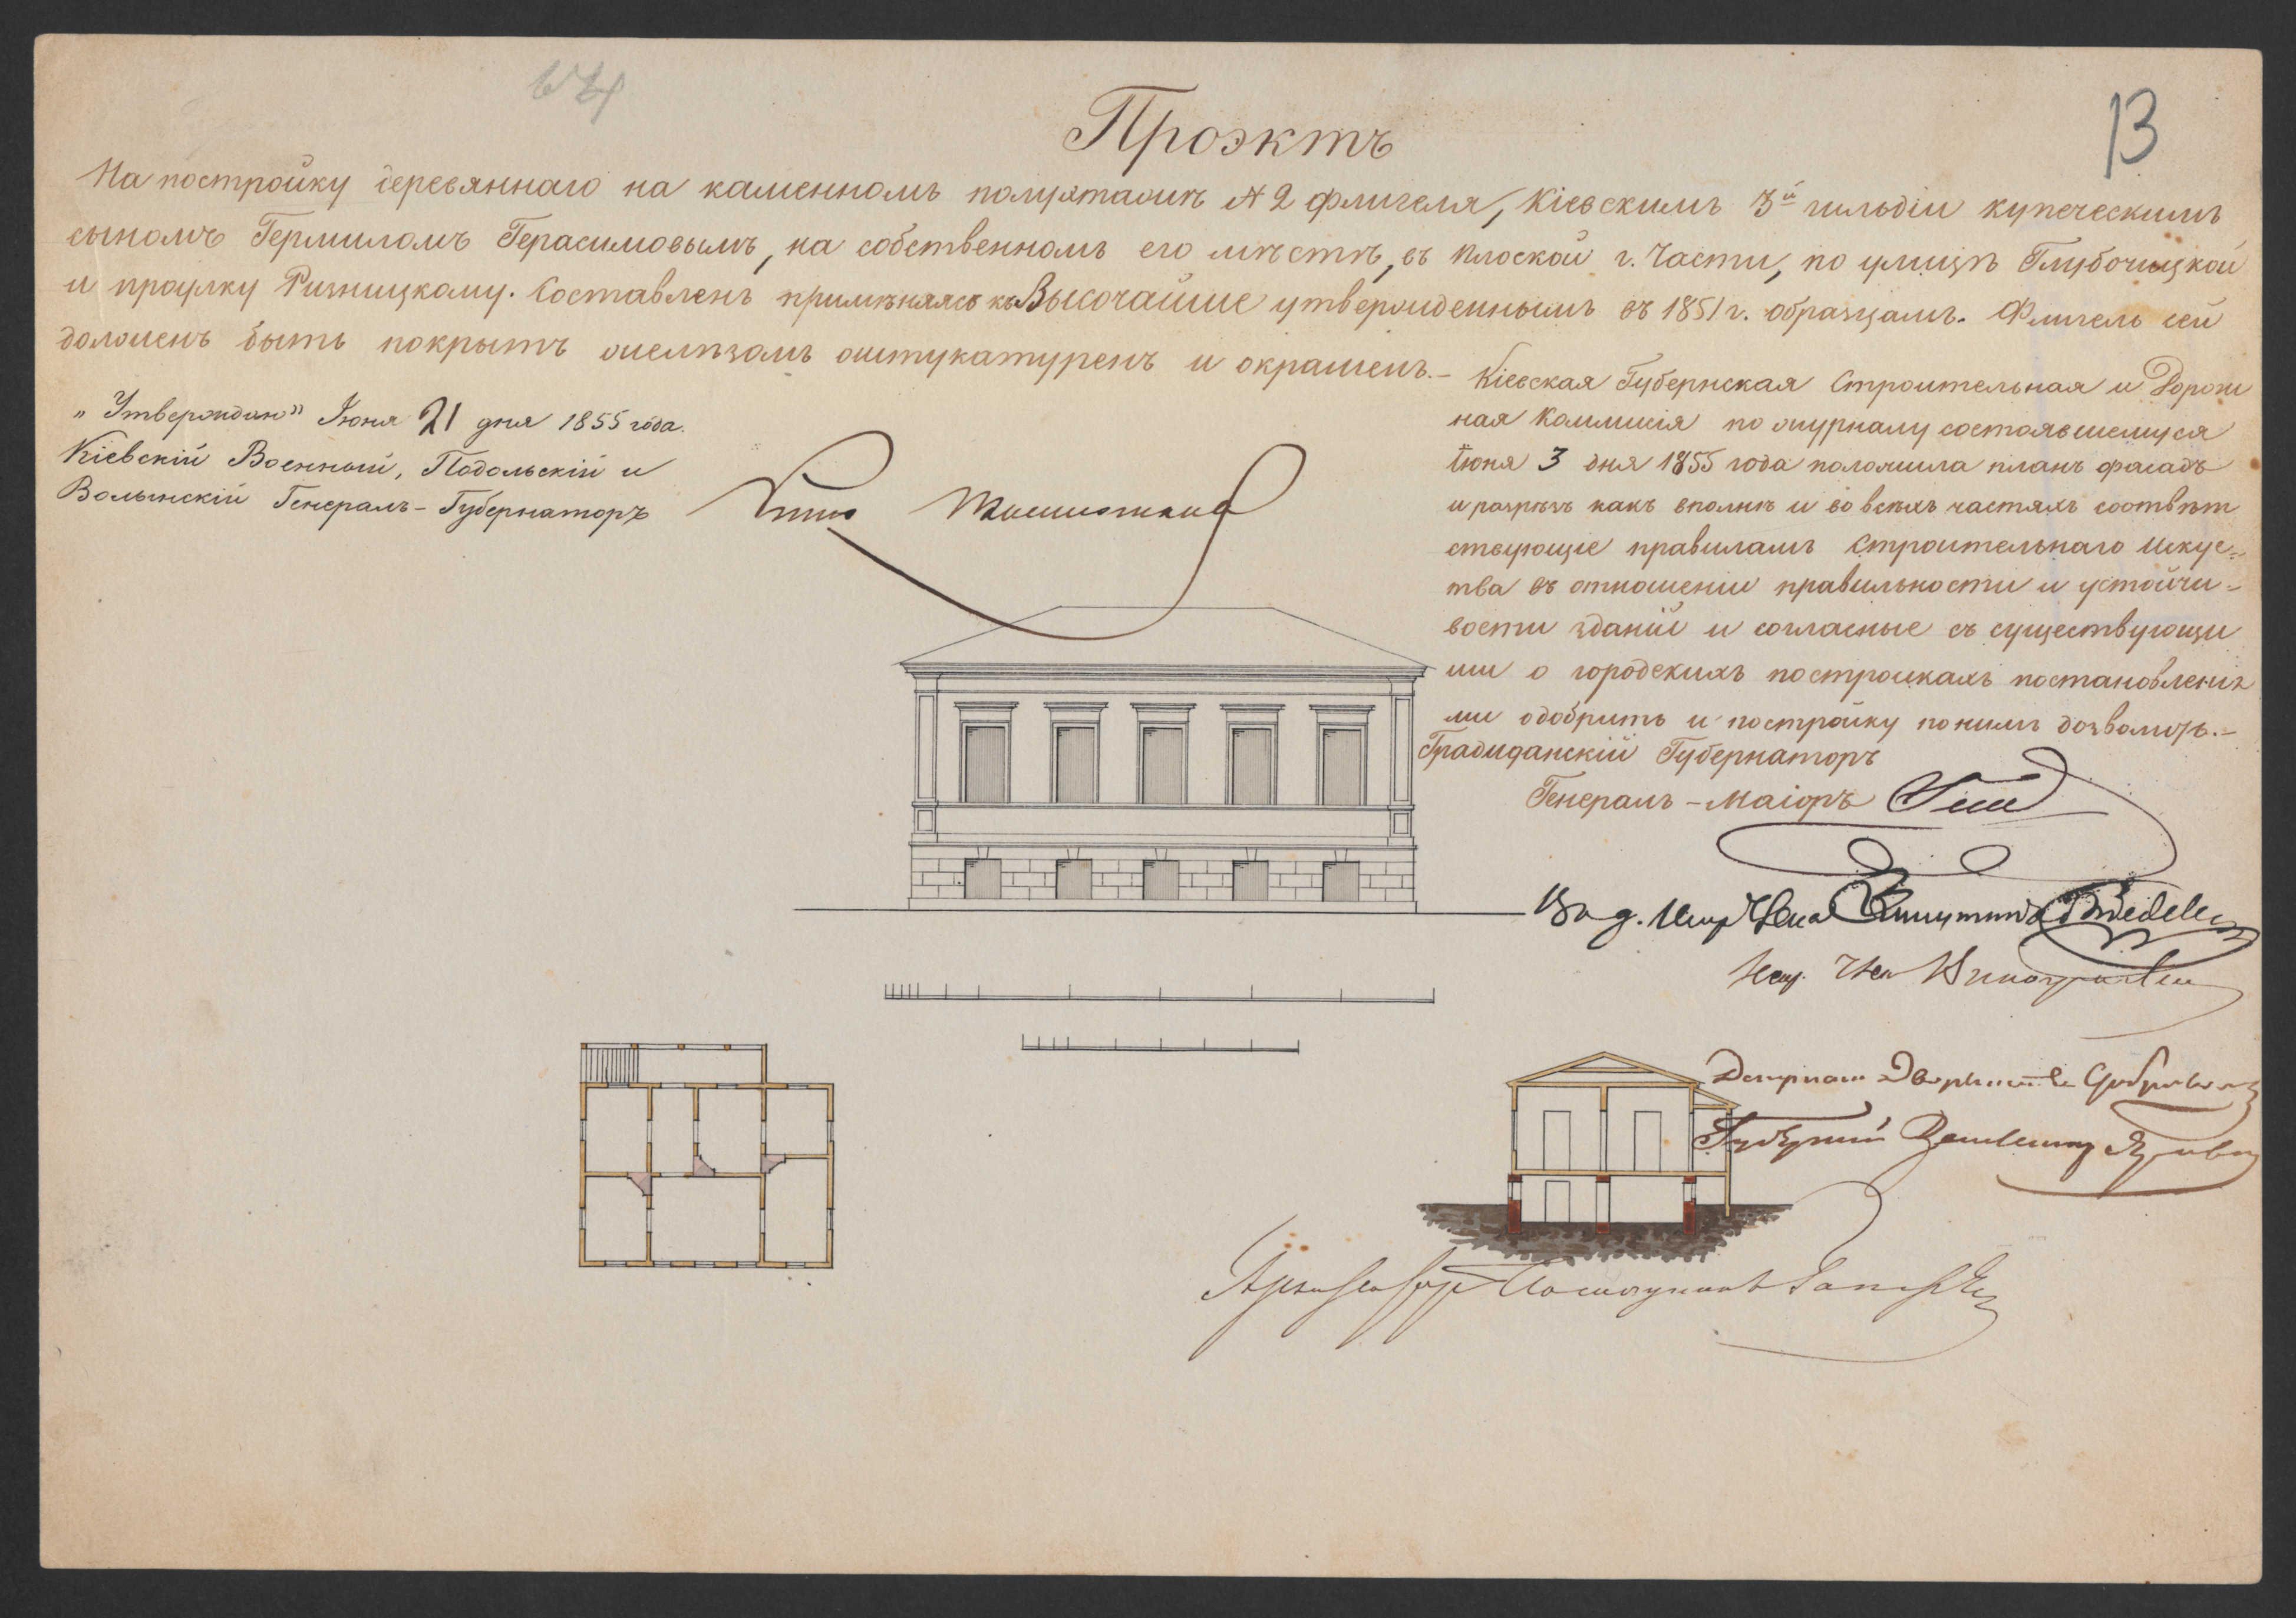 13
Проэктъ
На постройку деревяннаго на каменномъ полуэтажѣ № 2 флигеля, Кіевскимъ 3й гильдіи купеческимъ
сыномъ Гермиломъ Герасимовымъ, на собственномъ его мѣстѣ, въ Плоской г. Части, по улицѣ Глубочицкой
и проулку Ризницкому. Составленъ примѣняясь къ Высочайше утвержденнымъ въ 1851 г. образцамъ. Флигель сей
долженъ быть покрытъ желѣзомъ оштукатуренъ и окрашенъ.–
„Утверждаю" Іюня 21 дня 1855 года.
Кіевскій Военный, Подольскій и
Волынскій Генералъ-Губернаторъ
Кіевская Губернская Строительная и Дорож
ная Коммисія по журналу состоявшемуся
Іюня 3 дня 1855 года положила планъ фасадъ
и разрѣзъ какъ вполнѣ и во всѣхъ частяхъ соотвѣт
ствующіе правиламъ Строительнаго Искус-
тва въ отношеніи правильности и устойчи-
вости зданій и согласные съ существующи
ми о городскихъ постройкахъ постановлені
ми одобрить и постройку по нимъ дозволить.–
Гражданскій Губернаторъ
Генералъ-Маіоръ
Депутат Дворянства
Губернскій
Архитекторъ